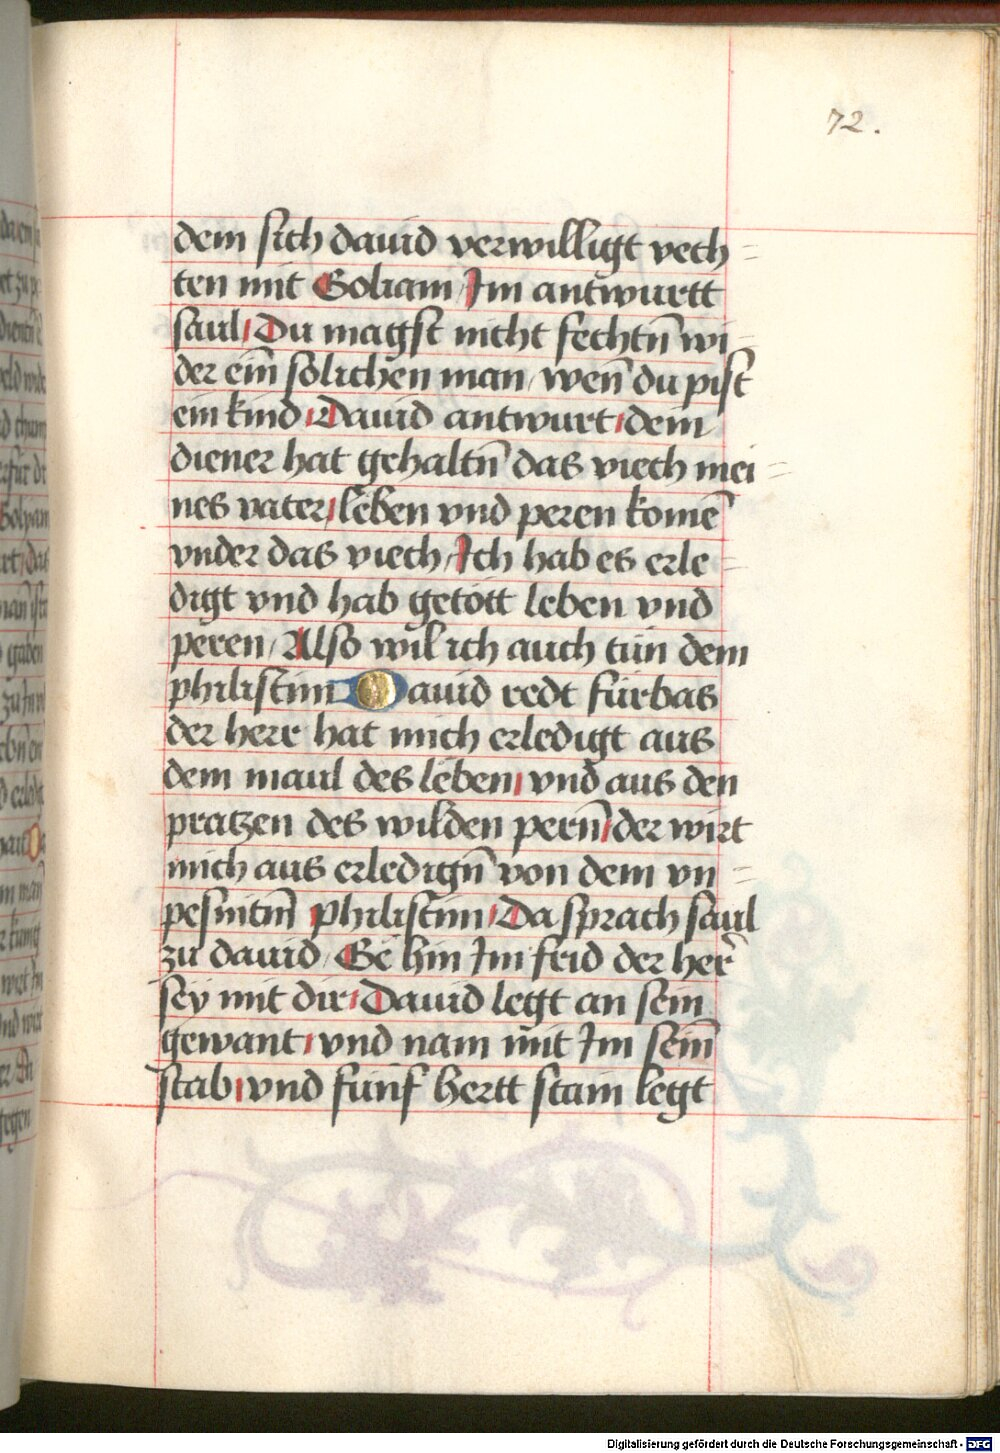 72.
dem sich dauid verwilligt vech=
ten mit Goliam, Im antwurtt
saul, Du magst nicht fechtn̄ wi=
der ein̄ solichen man, wen̄ du pist
ein kind, Dauid antwurt, dem
diener hat gehaltn̄ das viech mei=
nes vater, leben vnd peren komē
vnder das viech, Ich hab es erle=
digt vnd hab getött leben vnd
peren, Also wil ich auch tün dem
philistim Dauid redt fürbas
der herr hat mich erledigt aus
dem maul des leben, vnd aus den
pratzen des wilden pern̄, der wirt
mich aus erledign̄ von dem vn=
pesnitm̄ philistim, Da sprach saul
zu dauid, Ge hin Im frid der her̄
sey mit dir, Dauid legt an sein
gewant, vnd nam mit Im sein̄
stab, vnd fünf hertt stain legt
Digitalisierung gefördert durch die Deutsche Forschungsgemeinschaft - DFG